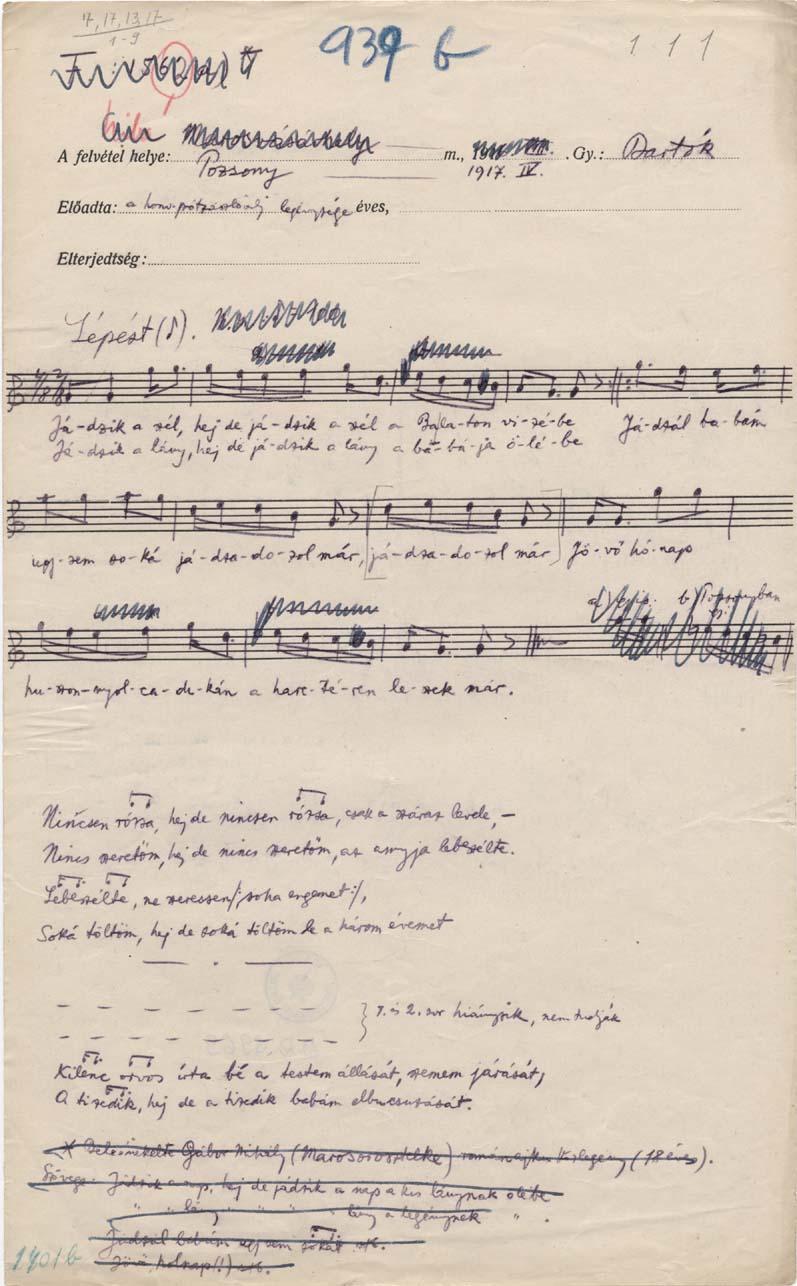 7, 17, 13, 17
1-9
939 b
1 1 1
A felvétel helye: Marosvásárhely m., 191 . Gy.: Bartók
Pozsony 1917. IV.
Előadta: a honv. legénysége éves,
Elterjedtség:
Lépést (♪).
Já-dzik a szél, hej de já-dzik a szél a Bala-ton vi-zé-be Já-dzál ba-bám
Já-dzik a lány, hej de já-dzik a lány a ba-bá-ja ö-lé-be
ugy-sem so-ká já-dza-do-zol már, já-dza-do-zol már Jö-vő hó-nap
a) b) Pozsonyban
hu-szon-nyol-ca-di-kán a harc-té-ren le-szek már.
Nincsen rózsa, hej de nincsen rózsa, csak a száraz levele, –
Nincs szeretőm, hej de nincs szeretőm, az anyja lebeszélte.
Lebeszélte, ne szeressen /: soha engemet :/,
Soká töltöm, hej de soká töltöm le a három évemet
1. és 2. sor hiányzik, nem tudják
Kilenc orvos írta bé a testem állását, szemem járását,
A tizedik, hej de a tizedik babám elbucsuzását.
* Gábor Mihály (Marosoroszfalu) románajku (18 éves).
Szöveg: Jádzik a nap, hej de jádzik a nap a kis lánynak ölébe
" " lány " " " " lány a legénynek " .
Jádzál babám ugy sem sokát stb.
Jövő holnap(!) stb.
1401b